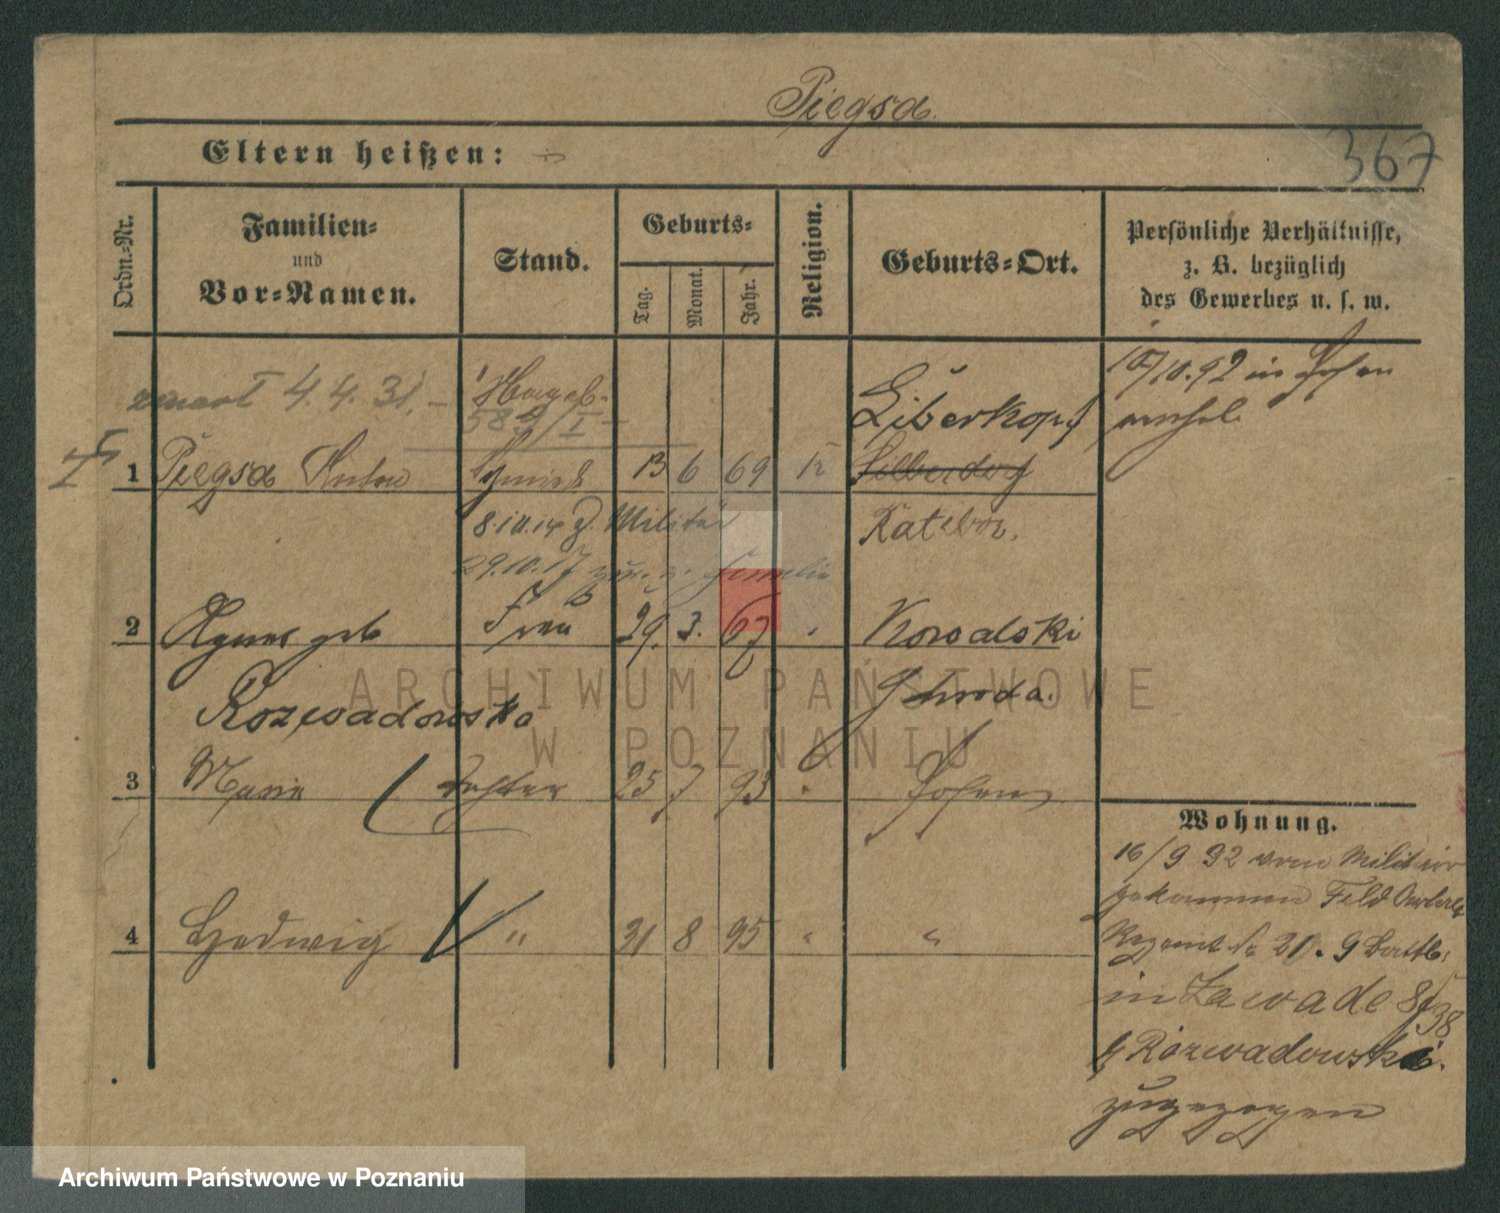 Piegsa.
367
Eltern heißen:
Ordn.-Nr.
Familien-
und
Vor-Namen.
Stand.
Geburts-
Tag.
Monat.
Jahr.
Religion.
Geburts-Ort.
Persönliche Verhältnisse,
z. B. bezüglich
des Gewerbes u. s. w.
zmarł 4.4.31.
10/10.92 in Posen
Liberkopf
1 Piegsa Anton 13 6 69 Silberdorf
8.10.14 z. Militär
Ratibor.
29.10.17 zur. z. Familie
2 Agnes geb Frau 29. 3. 67 Kowalski
Rozwadowska
Schroda.
3 Marie Tochter 25 7 93 " Posen
Wohnung.
16/9 92 vom Militär
gekommen Feld
4 Hedwig " 31 8 95 " "
Regimt No 21. 9
in Zawade 8/38
b Rozwadowski
zugezogen
ARCHIWUM PAŃSTWOWE
W POZNANIU
Archiwum Państwowe w Poznaniu